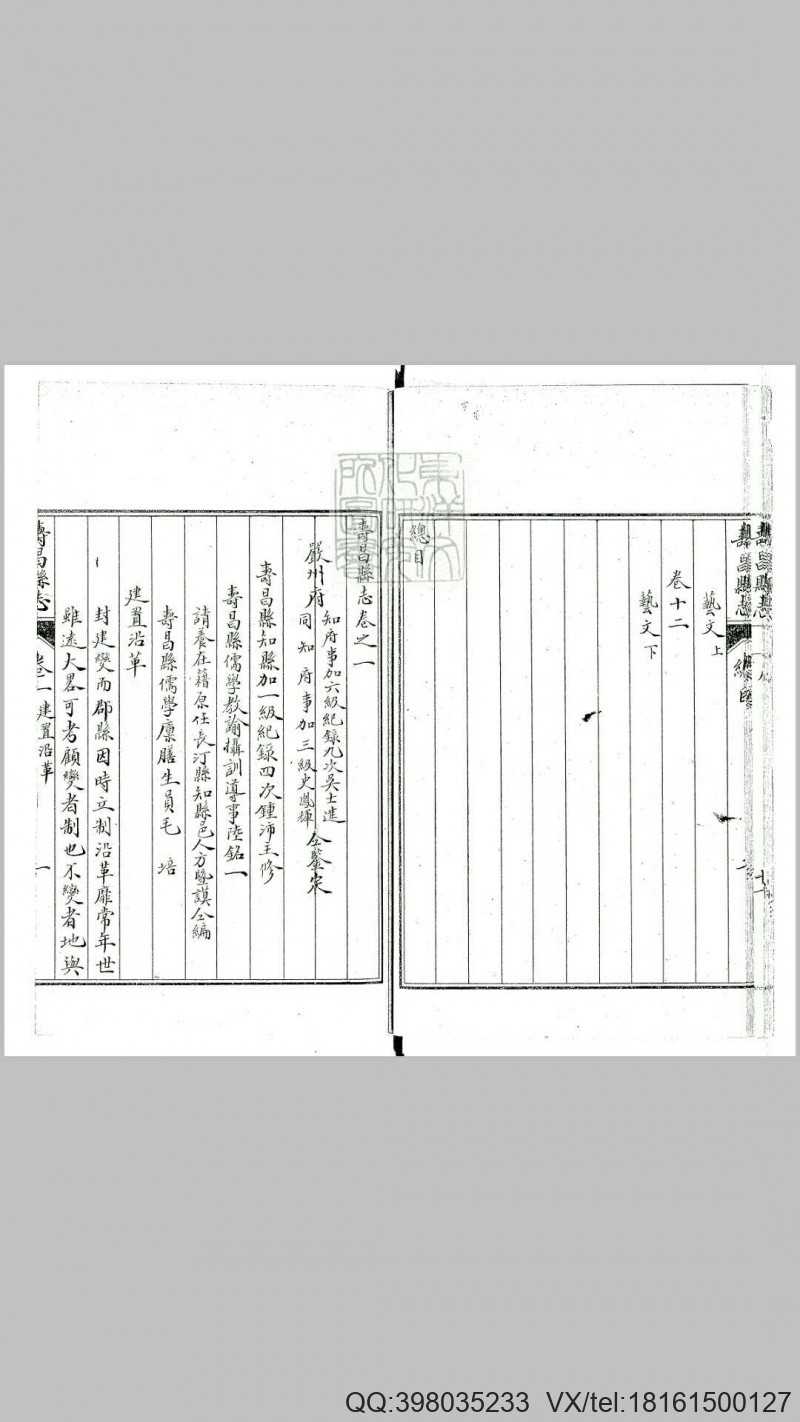 壽昌縣志
總目
藝文上
卷十二
藝文下
總目
壽昌縣志卷之一
嚴州府
知府事加六級紀錄九次吳士進
同知府事加三級史鳳輝
仝鑒定
壽昌縣知縣加一級紀錄四次鍾沛主修
壽昌縣儒學教諭攝訓導事陸銘一
請養在籍原任長汀縣知縣邑人方塈謨仝編
壽昌縣儒學廩膳生員毛培
建置沿革
封建變而郡縣因時立制沿革靡常年世
雖遠大畧可考顧變者制也不變者地與
壽昌縣志
卷一建置沿革
一
QQ:398035233 VX/tel:18161500127